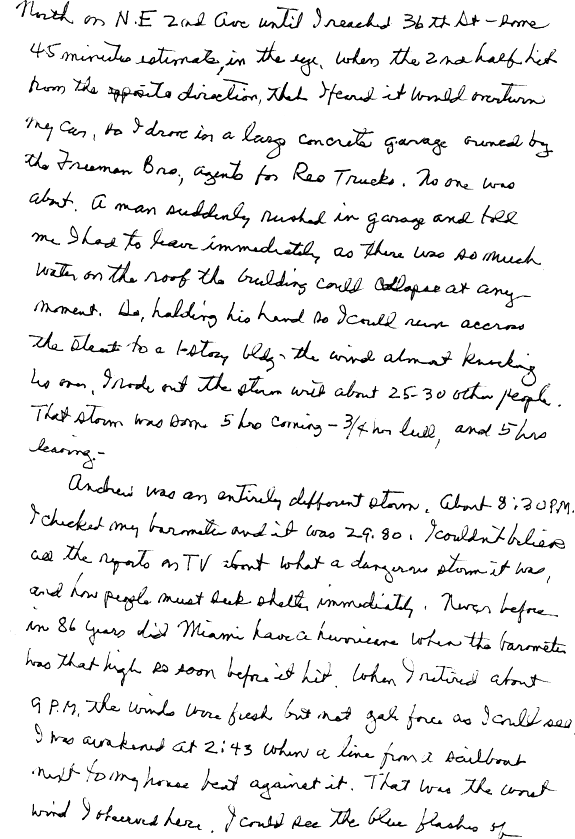 North on N.E 2nd Ave until I reached 36th St - some
45 minutes estimate, in the eye. When the 2nd half hit
from the opposite direction, then I feared it would overturn
my car, so I drove in a large concrete garage owned by
the Freeman Bro., agents for Reo Trucks. No one was
about. A man suddenly rushed in garage and told
me I had to leave immediately as there was so much
water on the roof the building could collapse at any
moment. So, holding his hand so I could run accross
the street to a 1-story bldg - the wind almost knocking
us over, I rode out the storm with about 25-30 other people.
That storm was some 5 hrs coming - 3/4 hr lull, and 5 hrs
leaving.-
Andrew was an entirely different storm. About 8:30 P.M.
I checked my barometer and it was 29.80. I couldn't believe
all the reports on TV about what a dangerous storm it was,
and how people must seek shelter immediately. Never before
in 86 years did Miami have a hurricane when the barometer
was that high so soon before it hit. When I retired about
9 P.M. the winds were fresh but not gale force as I could see
I was awakened at 2:43 when a line from a sailboat
next to my house beat against it. That was the worst
wind I observed here. I could see the blue flashes of